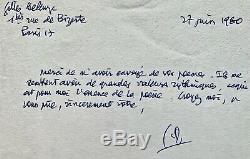 Gilles Deleuze
1 bis rue de Bizerte
Paris 17
27 juin 1960
Merci de m'avoir envoyé de vos poèmes. Ils me
semblent avoir de grandes valeurs rythmiques, ce qui
est pour moi l'essence de la poésie. Croyez moi, je
vous prie, sincèrement vôtre,